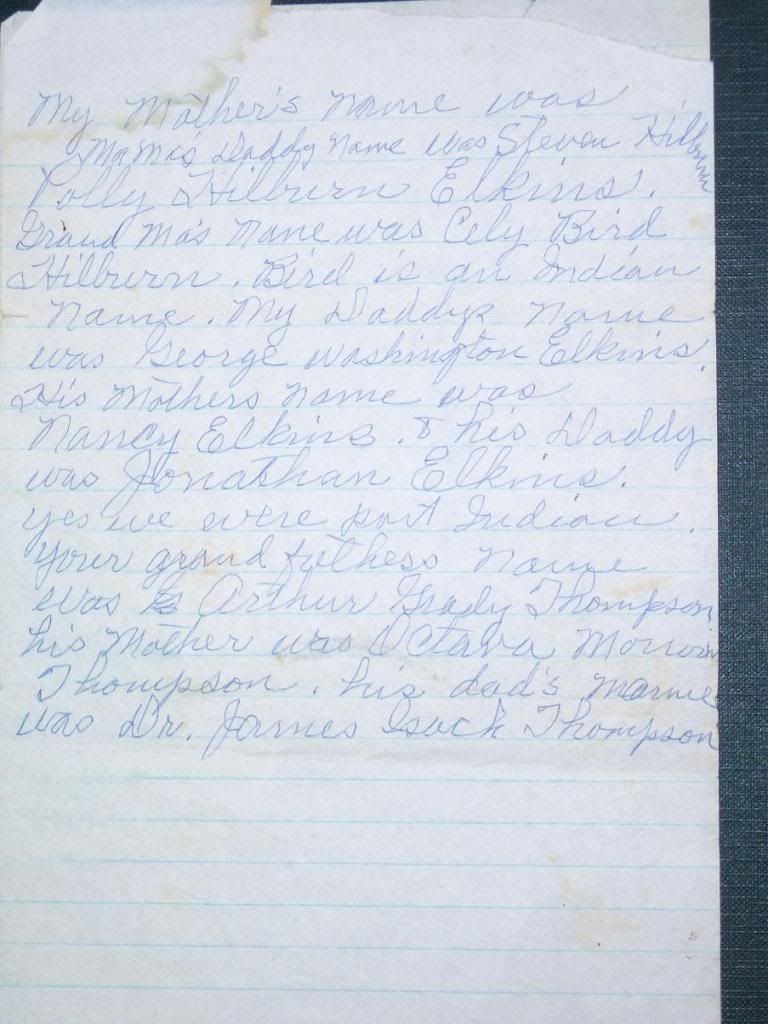 My Mother's name was
MaMa's Daddy Name was Steven Hilburn
Polly Hilburn Elkins.
Grand Ma's Name was Cely Bird
Hilburn. Bird is an Indian
Name. My Daddys Name
was George Washington Elkins.
His Mothers Name was
Nancy Elkins. & his Daddy
was Jonathan Elkins.
yes we were part Indian.
Your grand fathers Name
was Arthur Grady Thompson
his Mother was Octava
Thompson. his dad's Name
was Dr. James Isack Thompson